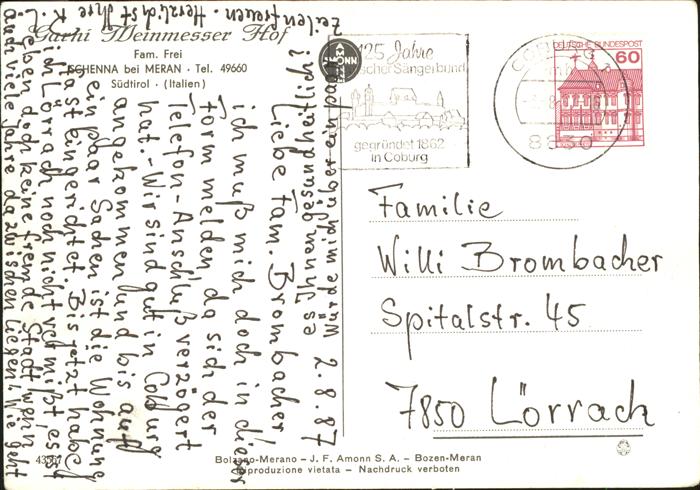 Garni Weinmesser Hof
Fam. Frei
SCHENNA bei MERAN · Tel. 49660
Südtirol · (Italien)
AMONN
125 Jahre
Sängerbund
gegründet 1862
in Coburg
COBURG
8630
DEUTSCHE BUNDESPOST
60
Familie
Willi Brombacher
Spitalstr. 45
7850 Lörrach
2.8.87
Liebe Fam. Brombacher
ich muß mich doch in dieser
Form melden, da sich der
Telefon-Anschluß verzögert
hat. - Wir sind gut in Coburg
angekommen und bis auf
ein paar Sachen ist die Wohnung
fast eingerichtet. Bis jetzt habe
ich Lörrach noch nicht vermißt, es ist
eben doch keine fremde Stadt, wenn
auch viele Jahre dazwischen liegen. Wie geht
es Ihnen gesundheitlich?
Würde mich über ein paar
Zeilen freuen. Herzlichst Ihre K.
Bolzano-Merano – J. F. Amonn S. A. – Bozen-Meran
Riproduzione vietata – Nachdruck verboten